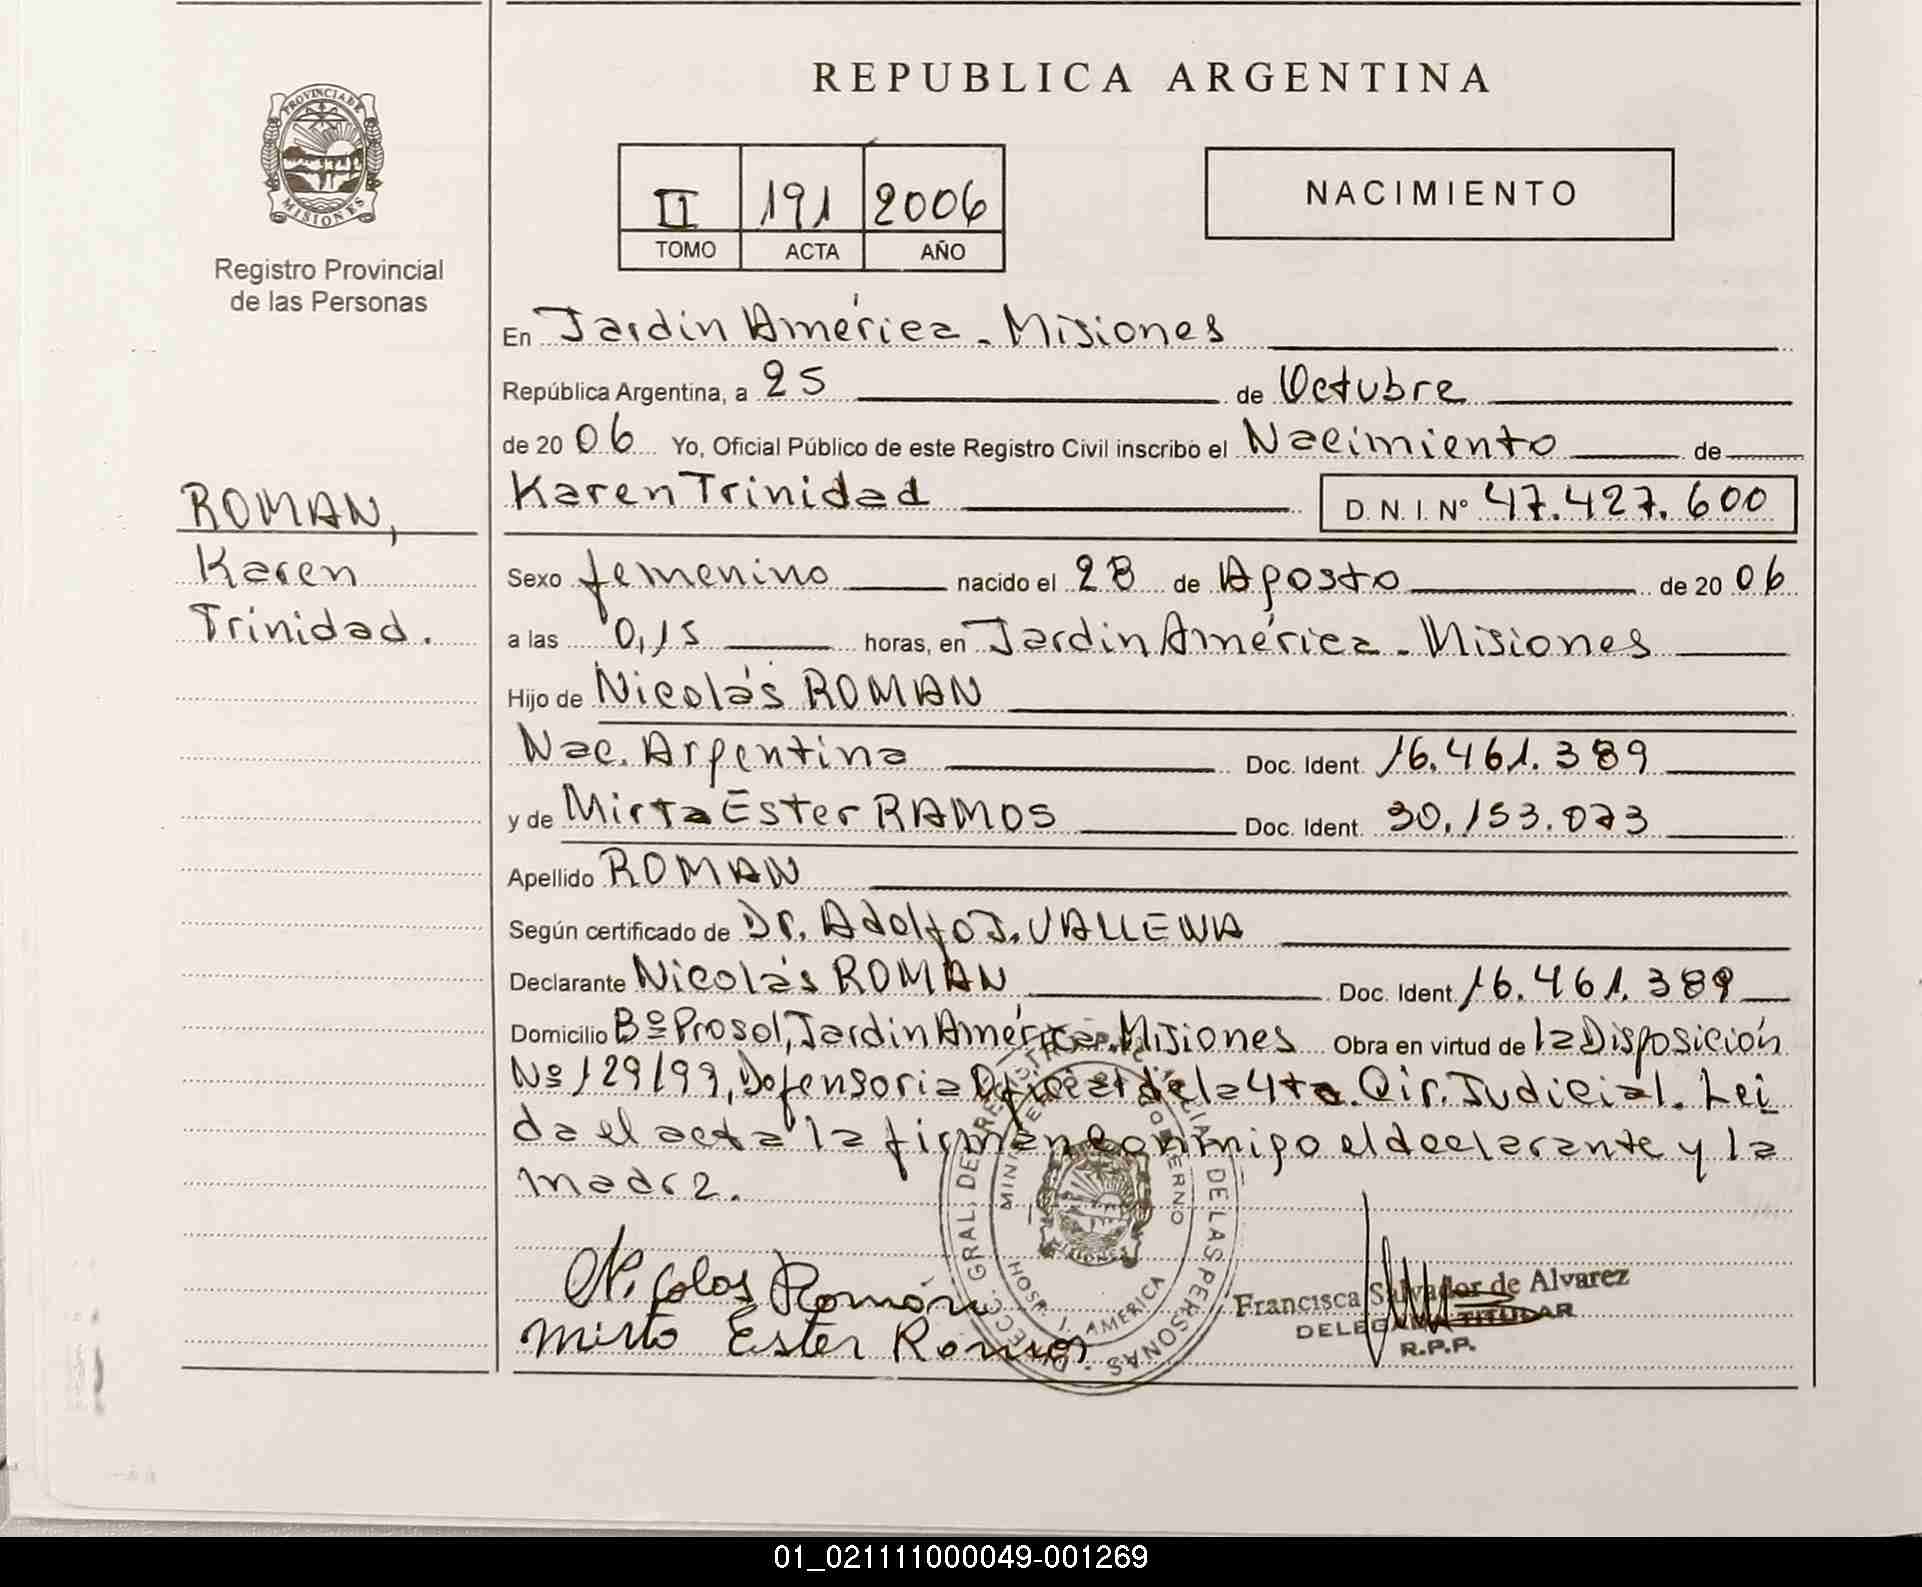 REPUBLICA ARGENTINA
PROVINCIA DE
MISIONES
Registro Provincial
de las Personas
II 191 2006
TOMO ACTA AÑO
NACIMIENTO
En Jardín América - Misiones
República Argentina, a 25 de Octubre
de 20 06 Yo, Oficial Público de este Registro Civil inscribo el Nacimiento de
Karen Trinidad D. N. I. N° 47.427.600
ROMAN,
Karen
Trinidad.
Sexo femenino nacido el 28 de Agosto de 20 06
a las 0,15 horas, en Jardin América - Misiones
Hijo de Nicolás ROMAN
Nac. Argentina Doc. Ident. 16.461.389
y de Mirta Ester RAMOS Doc. Ident. 30.153.073
Apellido ROMAN
Según certificado de Dr. Adolfo J.
Declarante Nicolás ROMAN Doc. Ident. 16.461.389
Domicilio Bº Prosol, Jardin América, Misiones Obra en virtud de la Disposición
Nº 129/99, Defensoria Oficial de la 4ta. Cir. Judicial. Lei
da el acta la firman conmigo el declarante y la
madre.
Nicolas Román
Mirta Ester Ramos
DIRECC. GRAL. DE REGISTRO PROVINCIAL DE LAS PERSONAS
MINISTERIO DE GOBIERNO
MISIONES
HOSP. J. AMERICA
Francisca Salvador de Alvarez
DELEGADA TITULAR
R.P.P.
01_021111000049-001269